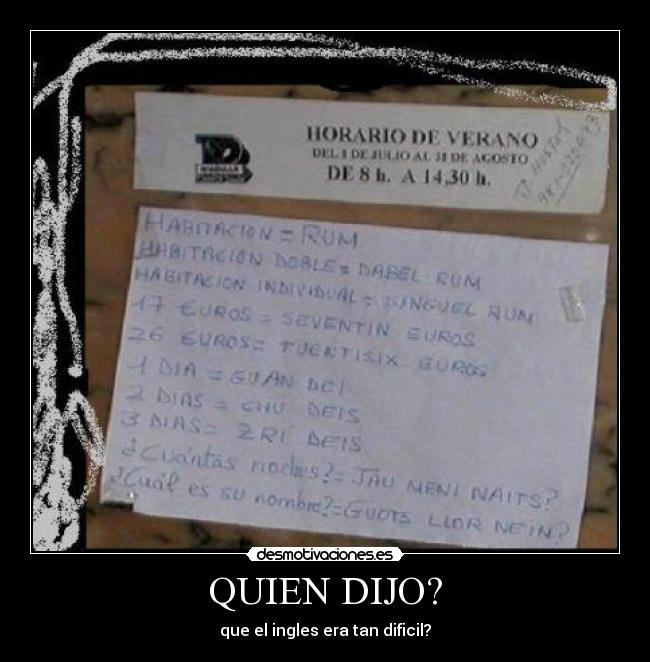 HORARIO DE VERANO
DEL 1 DE JULIO AL 31 DE AGOSTO
DE 8 h. A 14,30 h.
HABITACION = RUM
HABITACION DOBLE = DABEL RUM
HABITACION INDIVIDUAL = SINGUEL RUM
17 EUROS = SEVENTIN EUROS
26 EUROS = TUENTISIX EUROS
1 DIA = GUAN DEI
2 DIAS = CHU DEIS
3 DIAS = ZRI DEIS
¿Cuántas noches? = JAU MENI NAITS?
¿Cuál es su nombre? = GUOTS LLOR NEIN?
desmotivaciones.es
QUIEN DIJO?
que el ingles era tan dificil?